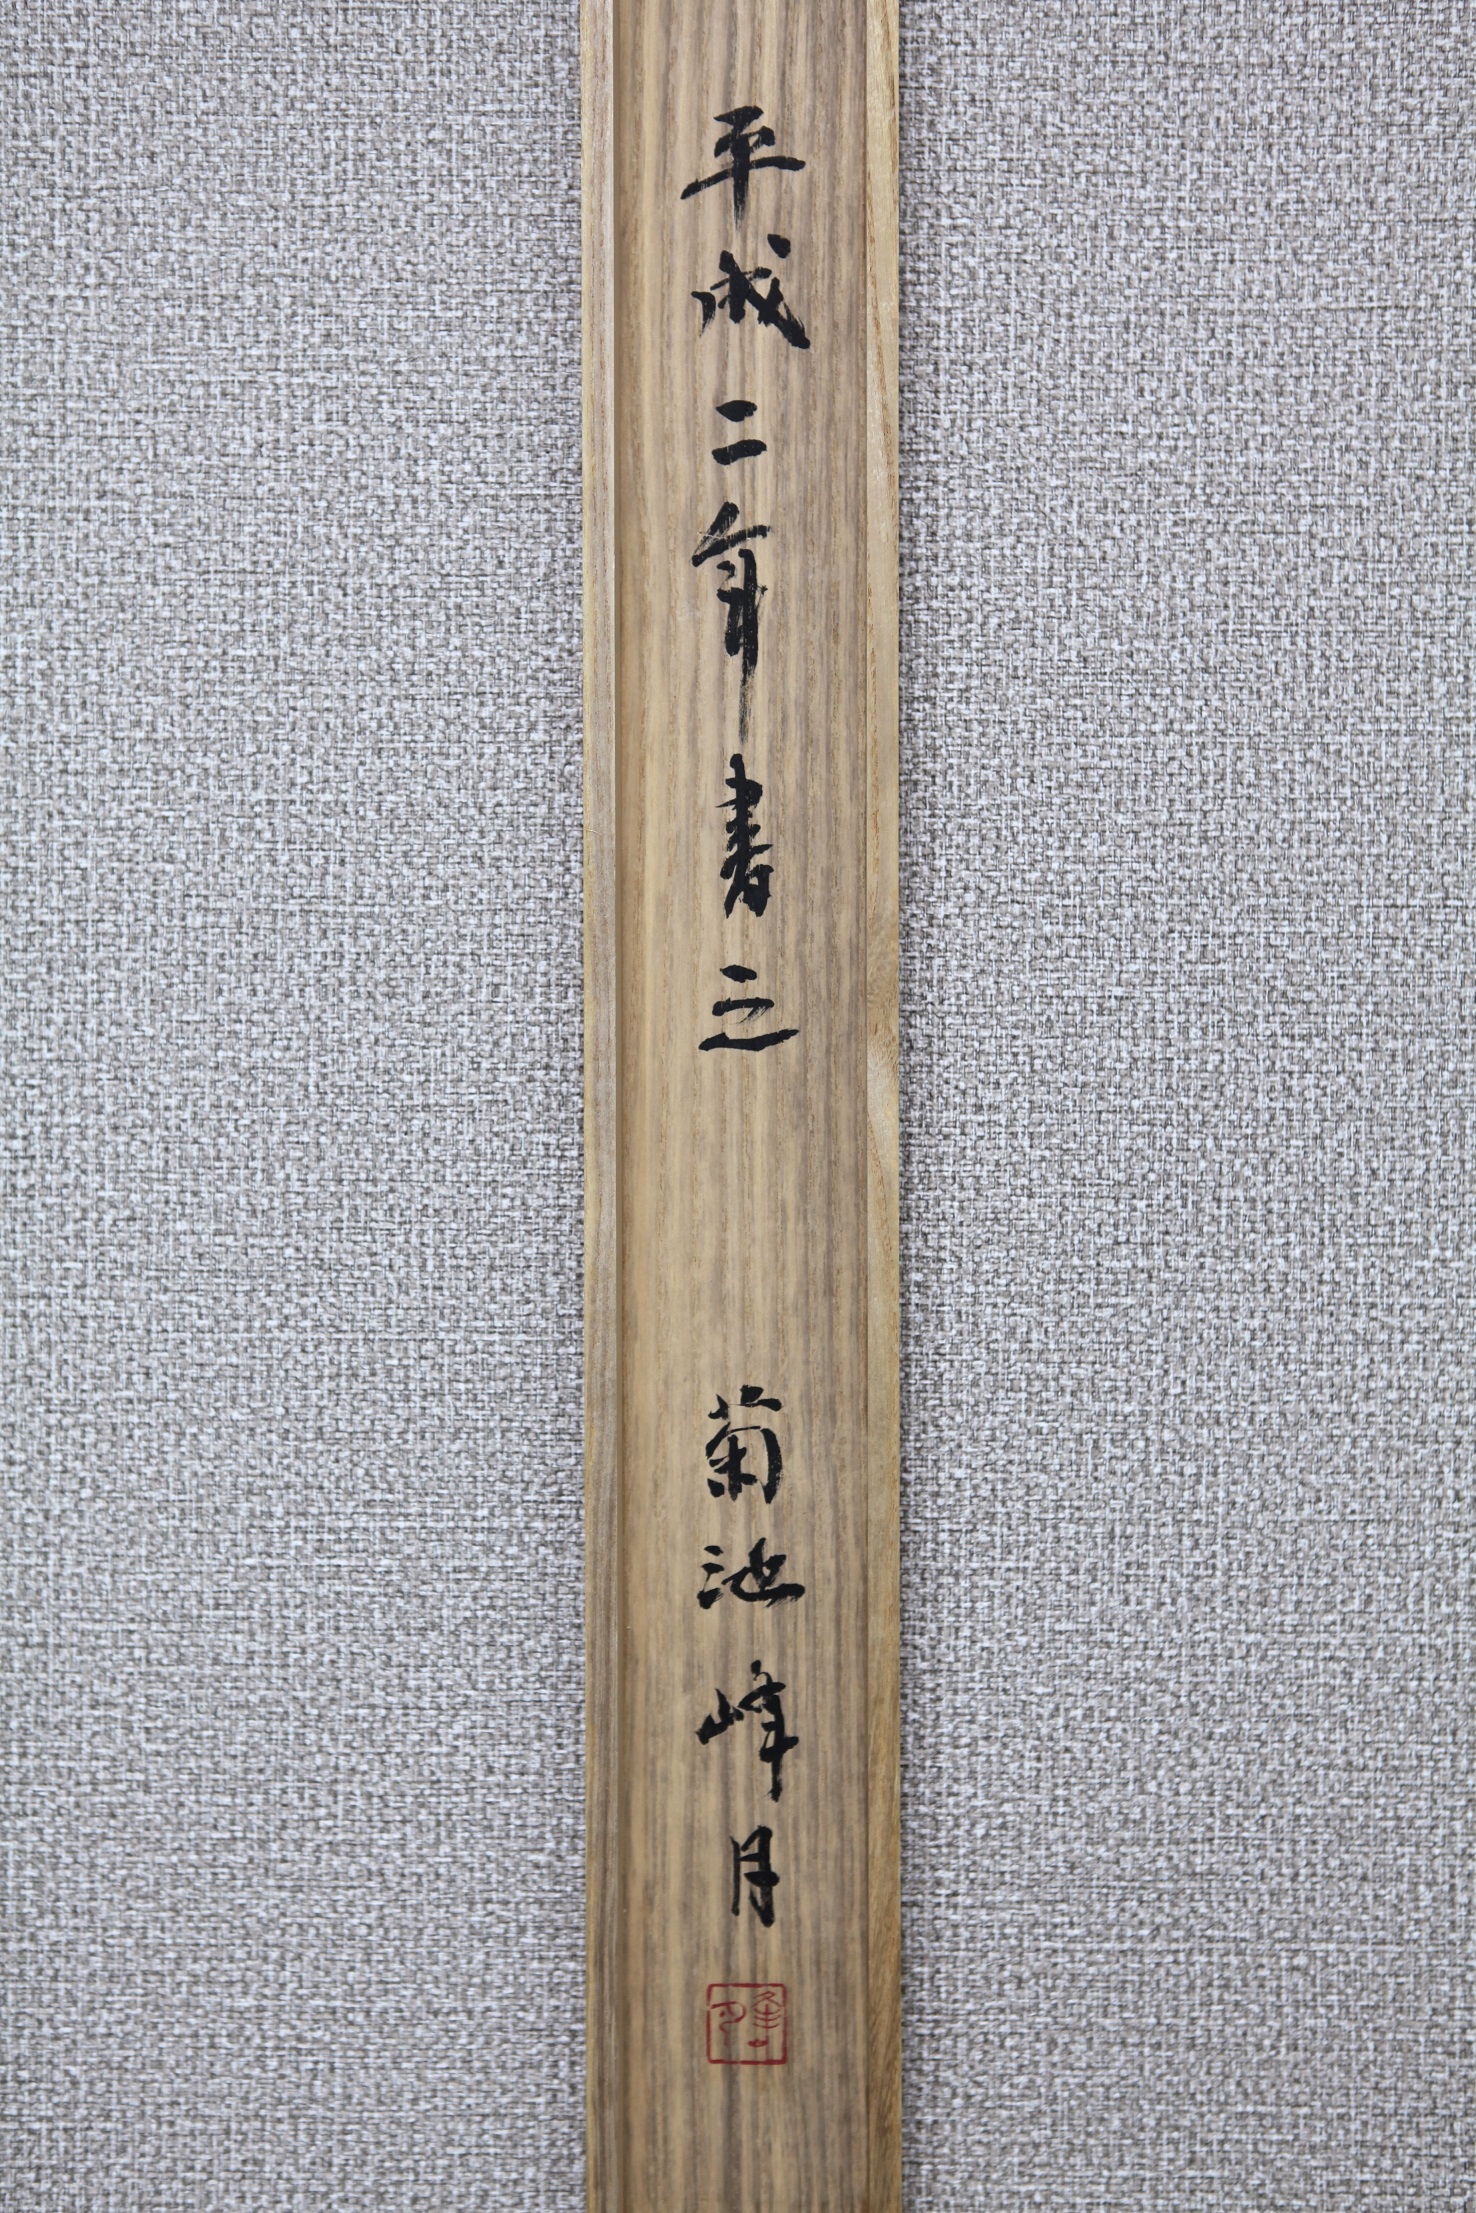 平成二年書之 菊池峰月
峰月